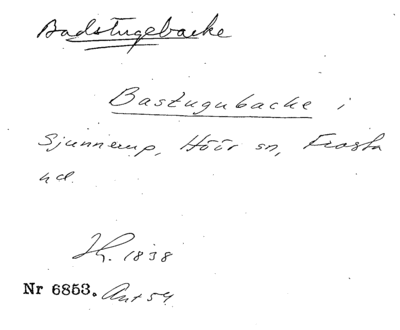 Badstugebacke
Bastugubacke i
Sjunnerup, Höör sn, Frosta
hd.
1838
Nr 6853. Ant 54